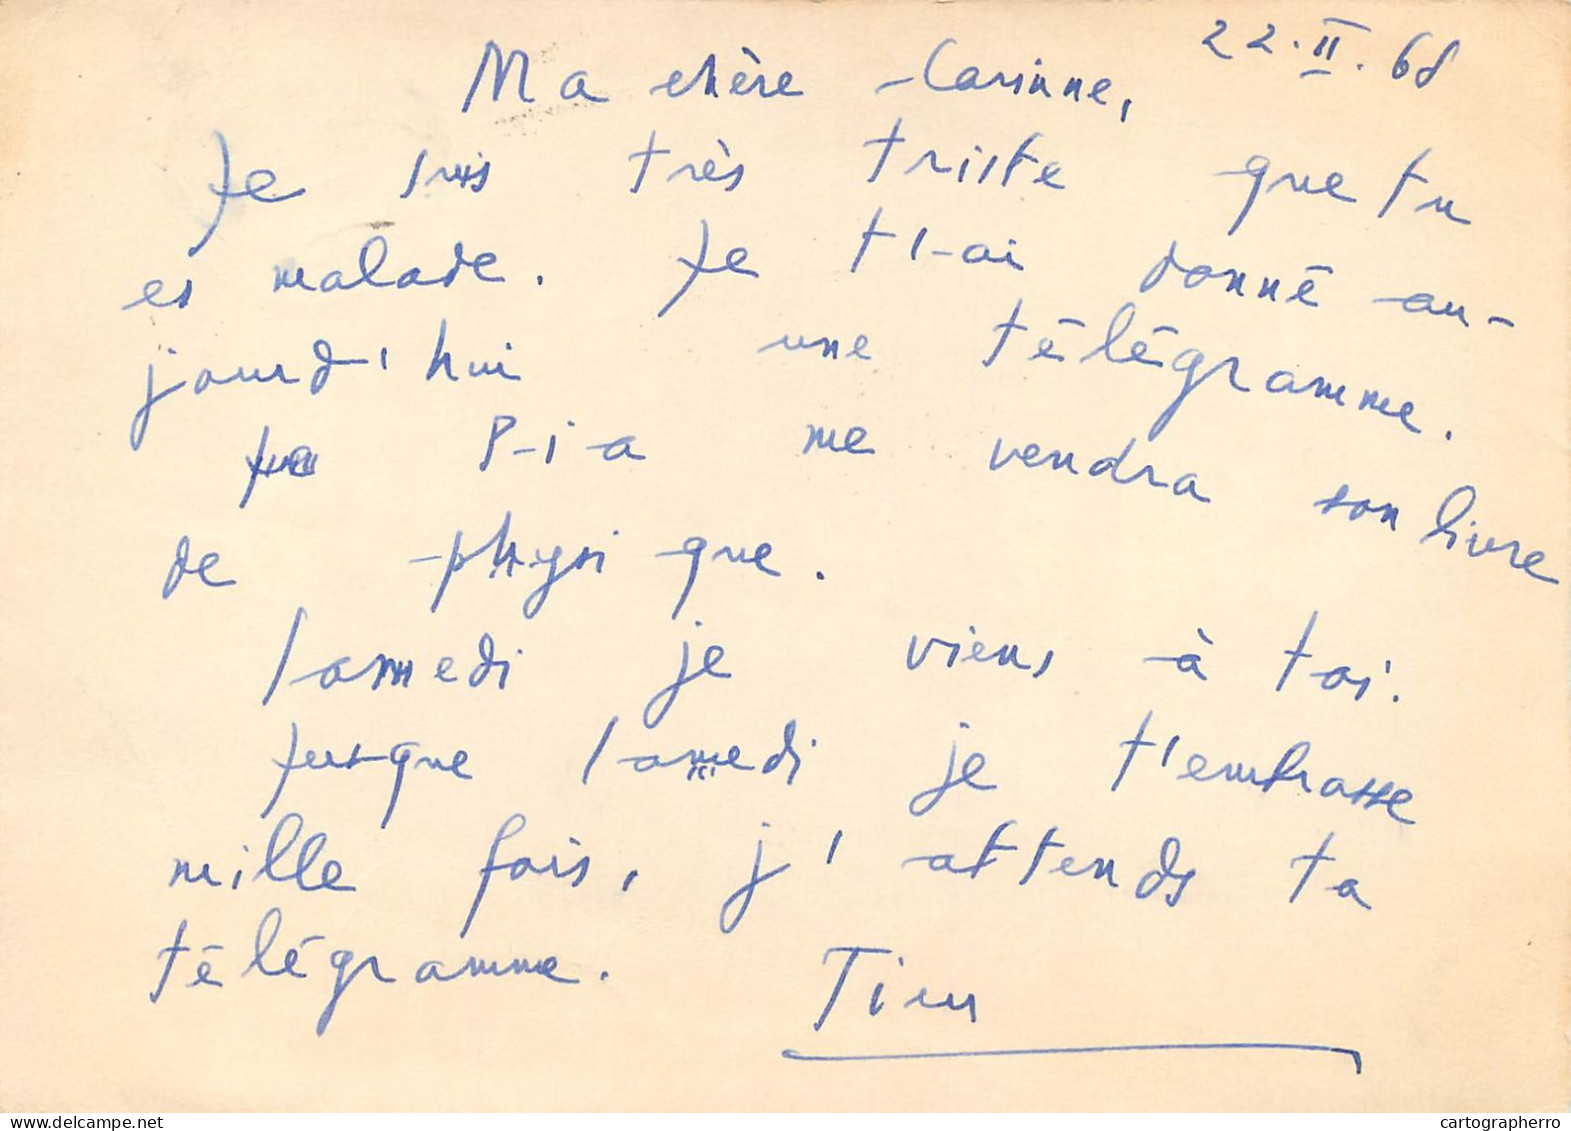 22.II.68
Ma chère Carinne,
Je suis très triste que tu
es malade. Je t'-ai donné au-
jourd'hui une télégramme.
P-i-a me vendra son livre
de physique.
Samedi je viens à toi.
Jusque samedi je t'embrasse
mille fois, j'attends ta
télégramme.
cartographerro